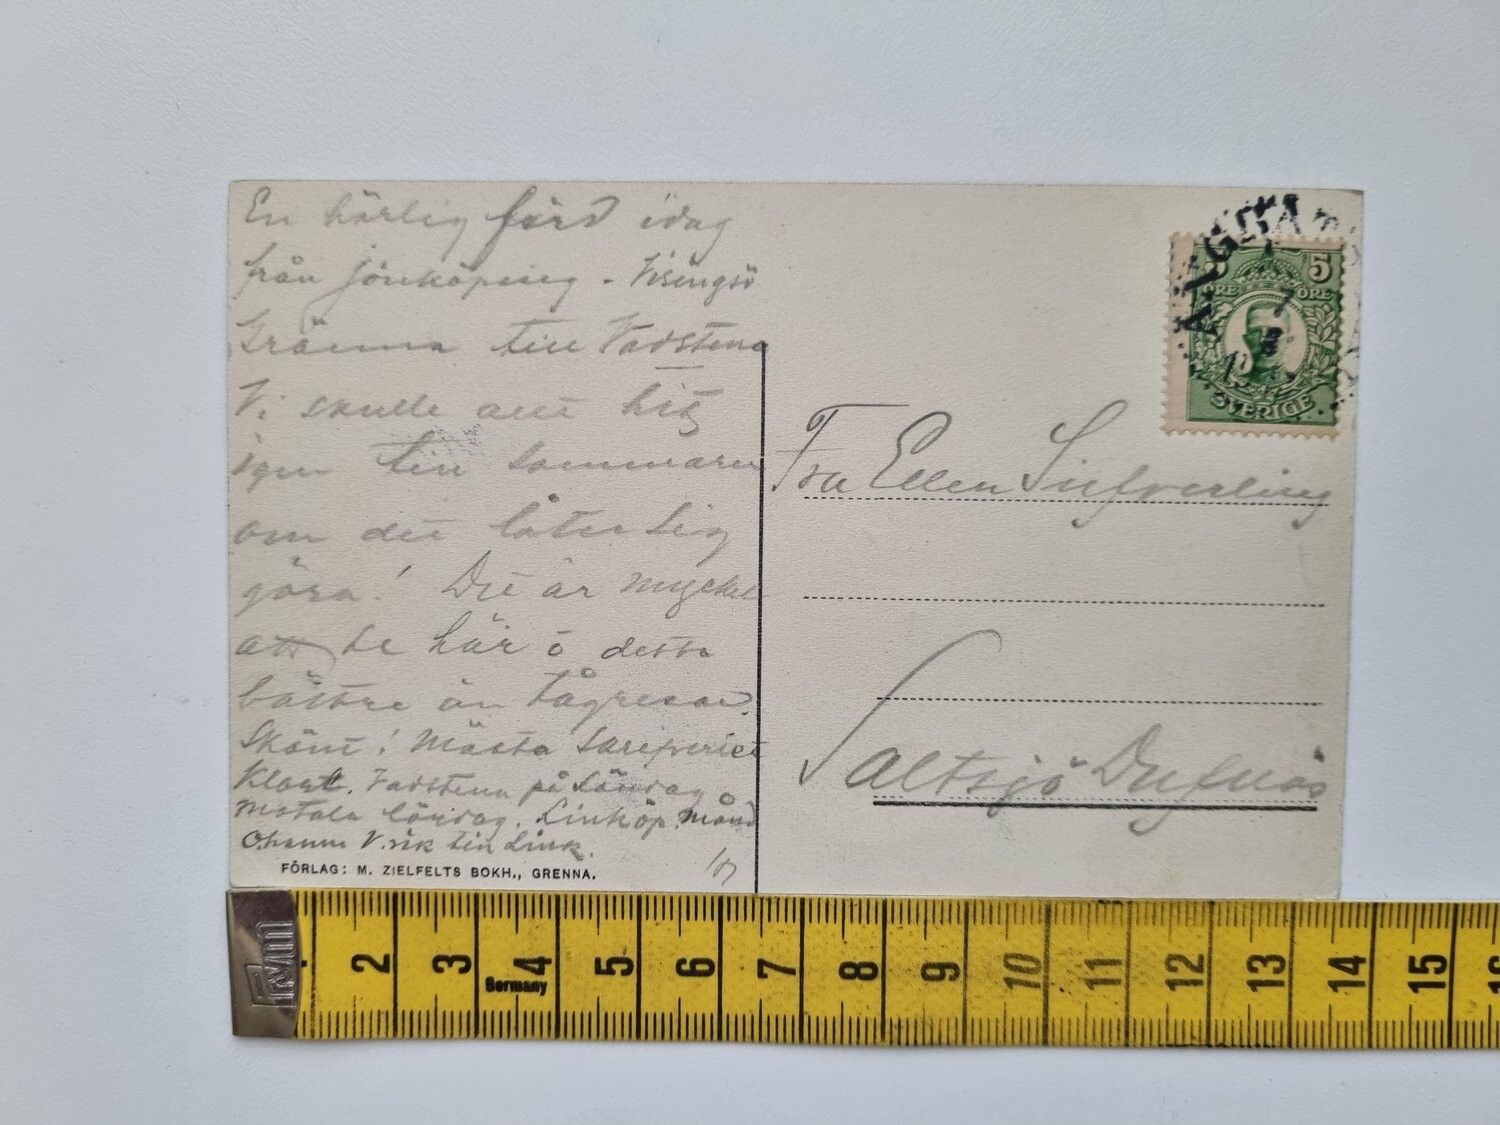 En härlig färd idag
från Jönköping - Visingsö
Gränna till Vadstena
Vi skulle allt hit
igen till sommaren
om det låter sig
göra! Det är mycket
att se här o detta
bättre än tågresan.
Skönt! Nästa
Klart. Vadstena på Söndag
Motala lördag. Linköp. Månd
V.vik till Link.
FÖRLAG: M. ZIELFELTS BOKH., GRENNA.
Fru Ellen Silfverling
Saltsjö Dufnäs
ÅNGBÅ
5
ÖRE ÖRE
SVERIGE
7
8
Germany
2 3 4 5 6 7 8 9 10 11 12 13 14 15 16